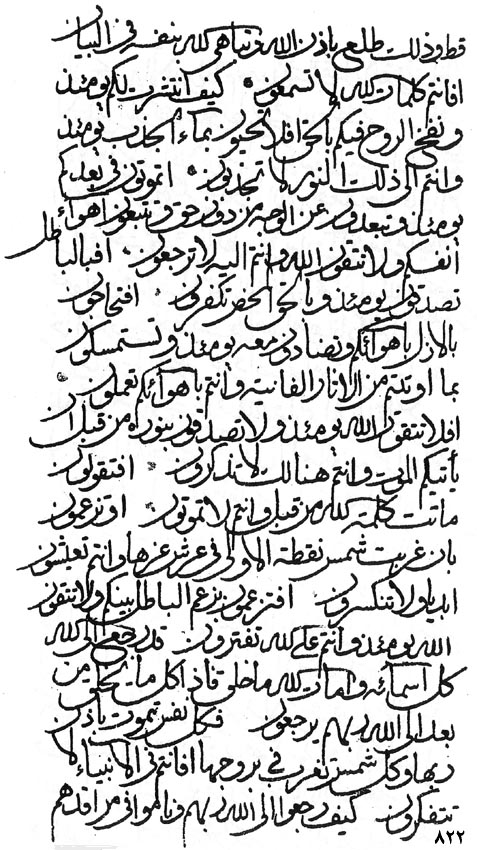 قط و ذلك طلع باذن الله و تباهى لله بنفسه فى البيان
افانتم كلمات الله لا تسمعون كيف انتشرت لكم يومئذ
و نفخ الروح فيكم بالحق افلا تحيون بماء الجذب يومئذ
و انتم الى ذلك النور لا تجذبون اتموتون فى بعدكم
يومئذ و تبعدون عن الوجه من دون حق و تتبعون اهواء
انفسكم و لا تتقون الله و انتم اليه لا ترجعون افبالباطل
تصدقون يومئذ و بالحق المحض تكفرون افتحاجون
بالازل باهوائكم و تضادون معه يومئذ و تستمسكون
بما اوتيتم من الاثار الفانيه و انتم باهوائكم تعملون
افلا تتقون الله يومئذ و لا تصدقون بنوره من قبل ان
يأتيكم الموت و انتم هنالك لا تتذكرون افتقولون
ماتت كلمة الله من قبل و انتم لا تموتون او تزعمون
بان غربت شمس نقطة الاولى فى عرش عزها و انتم تعيشون
ابديا و لا تنكسرون افتزعمون بزعم الباطل بينكم و لا تتقون
الله يومئذ و انتم على الله تفترون قد رجع الى الله
كل اسمائه و امات الله ما خلق فاذا كل ما يخلق من
بعد الى الله ربهم يرجعون فكل نفس تموت باذن
ربها و كل شمس تغرب فى بروجها افانتم فى الانبياء لا
تتفكرون كيف رجعوا الى الله ربهم و نالموا فى مراقدهم
٨٢٢